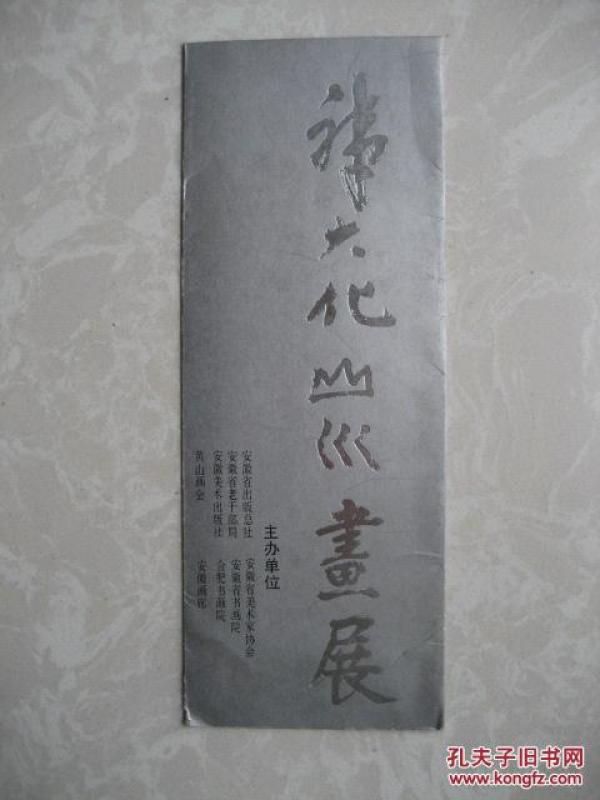 大化山水畫展
主办单位
安徽省出版总社 安徽省美术家协会
安徽省老干部局 安徽省书画院
安徽美术出版社 合肥书画院
黄山画会 安徽画廊
孔夫子旧书网
www.kongfz.com